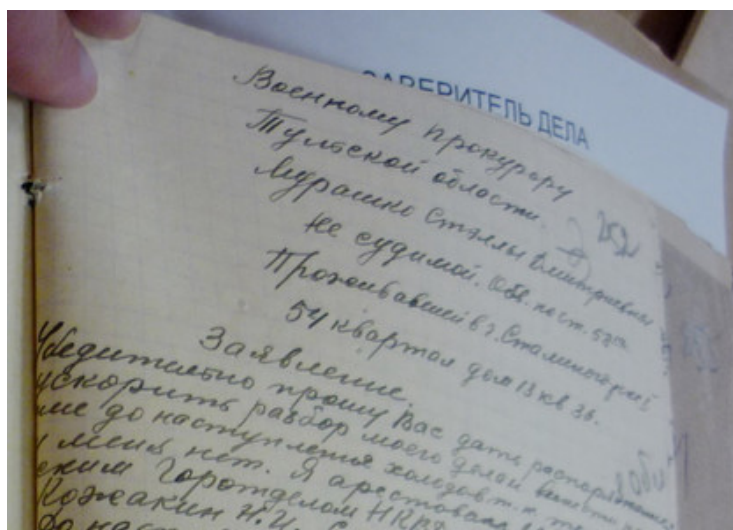 ЗАВЕРИТЕЛЬ ДЕЛА
Военному прокурору
Тульской области.
Мурашко Стэллы Дмитриевны
252
не судимой. Обв. по ст. 58
Проживавшей в г. Сталиногорске
54 квартал дом 13 кв 36.
Заявление.
Убедительно прошу Вас дать распоряжение
ускорить разбор моего дела
до наступленья холодов т. к.
меня нет. Я арестована
ским Горотделом НКВД
Кожакин Н. И.
До наст